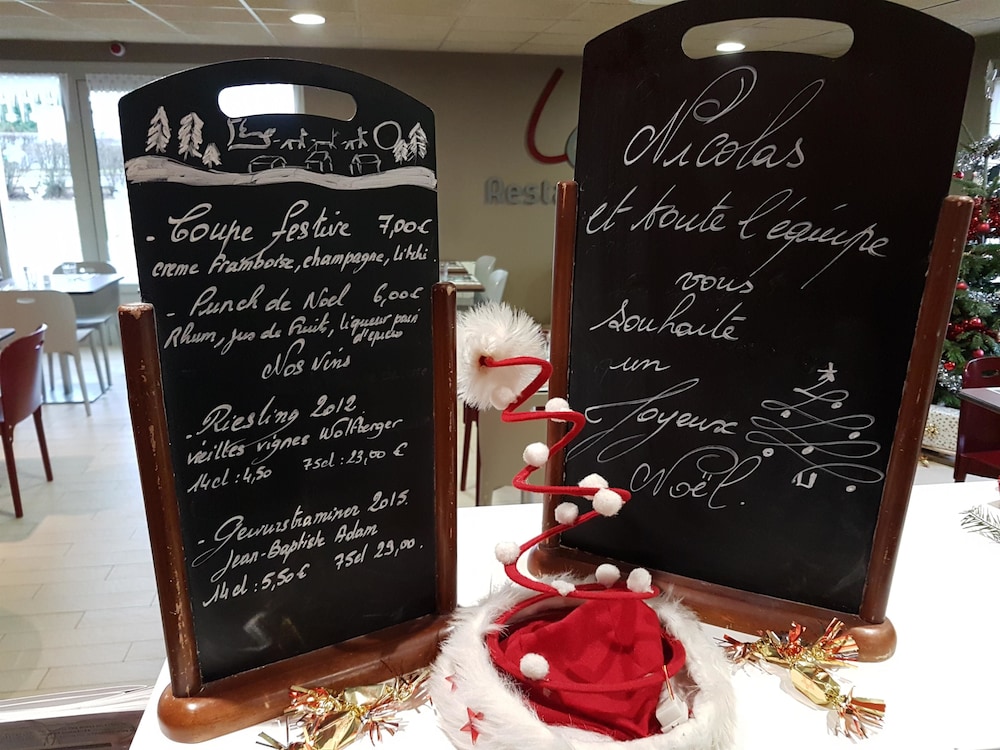 - Coupe festive 7,00€
creme Framboise, champagne, litchi
- Punch de Noel 6,00€
Rhum, jus de Fruit, liqueur pain
d'epices
Nos vins
- Riesling 2012
vieilles vignes Wolfberger
14cl : 4,50 75cl : 23,00 €
- Gewurstraminer 2015.
Jean-Baptiste Adam
14cl : 5,50€ 75cl 29,00.
Resta
Nicolas
et toute l'équipe
vous
souhaite
un
Joyeux
Noël.